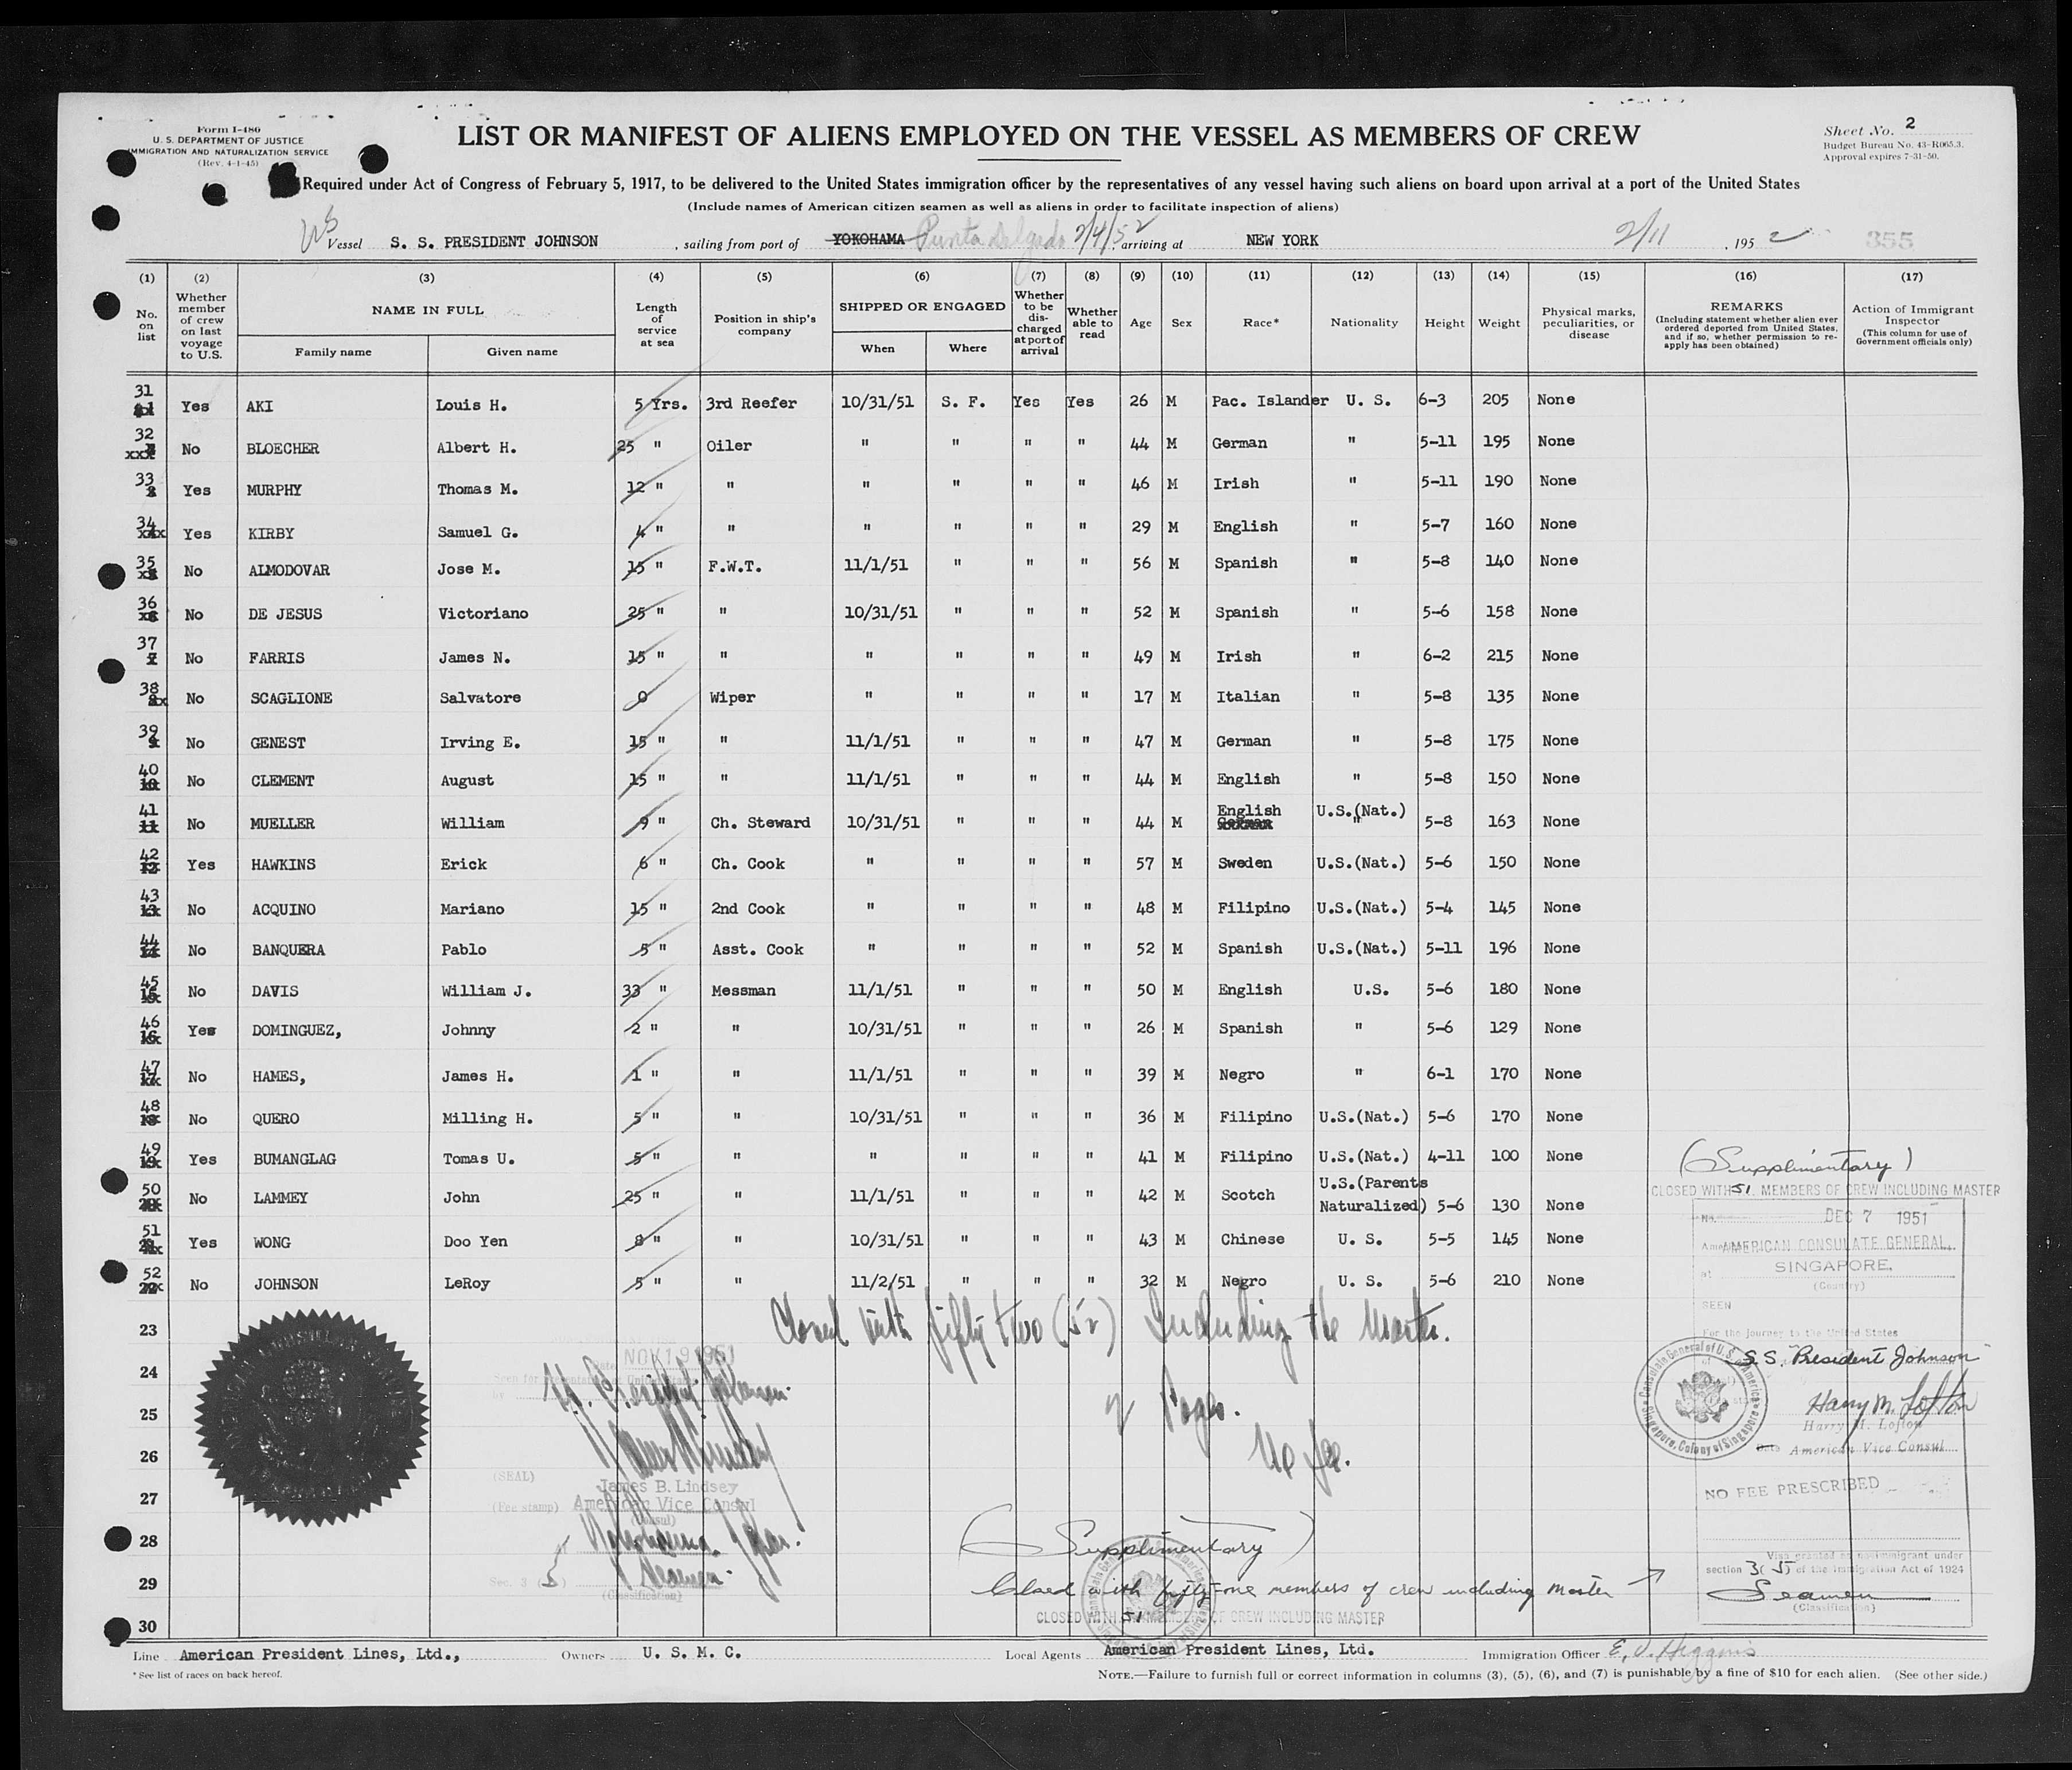 Form I-486
U. S. DEPARTMENT OF JUSTICE
IMMIGRATION AND NATURALIZATION SERVICE
(Rev. 4-1-45)
LIST OR MANIFEST OF ALIENS EMPLOYED ON THE VESSEL AS MEMBERS OF CREW
Sheet No. 2
Budget Bureau No. 43-R065.3.
Approval expires 7-31-50.
Required under Act of Congress of February 5, 1917, to be delivered to the United States immigration officer by the representatives of any vessel having such aliens on board upon arrival at a port of the United States
(Include names of American citizen seamen as well as aliens in order to facilitate inspection of aliens)
Vessel S. S. PRESIDENT JOHNSON , sailing from port of YOKOHAMA Punta Delgada 2/4/52 arriving at NEW YORK 2/11 , 195 2 355
(1) (2) (3) (4) (5) (6) (7) (8) (9) (10) (11) (12) (13) (14) (15) (16) (17)
No. on list
Whether member of crew on last voyage to U.S.
NAME IN FULL
Family name
Given name
Length of service at sea
Position in ship's company
SHIPPED OR ENGAGED
When
Where
Whether to be discharged at port of arrival
Whether able to read
Age
Sex
Race*
Nationality
Height
Weight
Physical marks, peculiarities, or disease
REMARKS
(Including statement whether alien ever ordered deported from United States, and if so, whether permission to reapply has been obtained)
Action of Immigrant Inspector
(This column for use of Government officials only)
31 Yes AKI Louis H. 5 Yrs. 3rd Reefer 10/31/51 S. F. Yes Yes 26 M Pac. Islander U. S. 6-3 205 None
32 No BLOECHER Albert H. 25 " Oiler " " " " 44 M German " 5-11 195 None
33 Yes MURPHY Thomas M. 12 " " " " " " 46 M Irish " 5-11 190 None
34 Yes KIRBY Samuel G. 4 " " " " " " 29 M English " 5-7 160 None
35 No ALMODOVAR Jose M. 15 " F.W.T. 11/1/51 " " " 56 M Spanish " 5-8 140 None
36 No DE JESUS Victoriano 25 " " 10/31/51 " " " 52 M Spanish " 5-6 158 None
37 No FARRIS James N. 15 " " " " " " 49 M Irish " 6-2 215 None
38 No SCAGLIONE Salvatore 0 Wiper " " " " 17 M Italian " 5-8 135 None
39 No GENEST Irving E. 15 " " 11/1/51 " " " 47 M German " 5-8 175 None
40 No CLEMENT August 15 " " 11/1/51 " " " 44 M English " 5-8 150 None
41 No MUELLER William 9 " Ch. Steward 10/31/51 " " " 44 M English German U.S.(Nat.) " 5-8 163 None
42 Yes HAWKINS Erick 6 " Ch. Cook " " " " 57 M Sweden U.S.(Nat.) 5-6 150 None
43 No ACQUINO Mariano 15 " 2nd Cook " " " " 48 M Filipino U.S.(Nat.) 5-4 145 None
44 No BANQUERA Pablo 5 " Asst. Cook " " " " 52 M Spanish U.S.(Nat.) 5-11 196 None
45 No DAVIS William J. 33 " Messman 11/1/51 " " " 50 M English U.S. 5-6 180 None
46 Yes DOMINGUEZ, Johnny 2 " " 10/31/51 " " " 26 M Spanish " 5-6 129 None
47 No HAMES, James H. 1 " " 11/1/51 " " " 39 M Negro " 6-1 170 None
48 No QUERO Milling H. 5 " " 10/31/51 " " " 36 M Filipino U.S.(Nat.) 5-6 170 None
49 Yes BUMANGLAG Tomas U. 5 " " " " " " 41 M Filipino U.S.(Nat.) 4-11 100 None
50 No LAMMEY John 25 " " 11/1/51 " " " 42 M Scotch U.S.(Parents Naturalized) 5-6 130 None
51 Yes WONG Doo Yen 8 " " 10/31/51 " " " 43 M Chinese U. S. 5-5 145 None
52 No JOHNSON LeRoy 5 " " 11/2/51 " " " 32 M Negro U. S. 5-6 210 None
23
24
25
26
27
28
29
30
Closed with fifty two (52) Including the Master.
No fee.
Date NOV 19 1951
SS. President Johnson
(SEAL)
James B. Lindsey
(Fee stamp) American Vice Consul
(Consul)
Yokohama, Japan.
Sec. 3 (5) Seamen
(Classification)
(Supplimentary)
Closed with fifty-one members of crew including Master
CLOSED WITH 51 MEMBERS OF CREW INCLUDING MASTER
(Supplimentary)
CLOSED WITH 51 MEMBERS OF CREW INCLUDING MASTER
No. DEC 7 1951
AMERICAN CONSULATE GENERAL,
at SINGAPORE.
(Country)
SEEN
For the journey to the United States
S.S. "President Johnson"
Harry M. Lofton
Harry M. Lofton
American Vice Consul
Consulate General of U.S. of America
Singapore, Colony of Singapore
NO FEE PRESCRIBED
Visa granted as nonimmigrant under
section 3(5) of the Immigration Act of 1924
Seamen
(Classification)
Line American President Lines, Ltd., Owners U. S. M. C. Local Agents American President Lines, Ltd. Immigration Officer E. V. Higgins
* See list of races on back hereof.
NOTE.—Failure to furnish full or correct information in columns (3), (5), (6), and (7) is punishable by a fine of $10 for each alien. (See other side.)